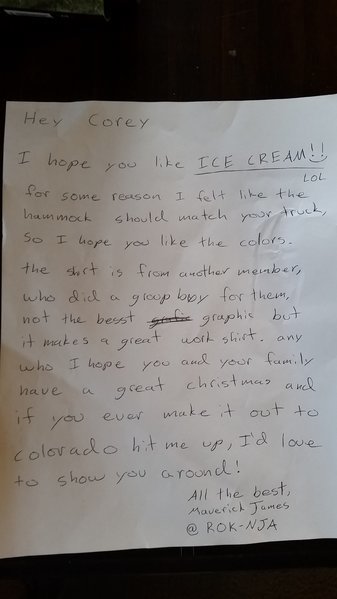 Hey Corey
I hope you like ICE CREAM!!
LOL
for some reason I felt like the
hammock should match your truck,
so I hope you like the colors.
the shirt is from another member,
who did a group buy for them,
not the besst graphic but
it makes a great work shirt. any
who I hope you and your family
have a great christmas and
if you ever make it out to
colorado hit me up, I'd love
to show you around!
All the best,
Maverick James
@ ROK-NJA